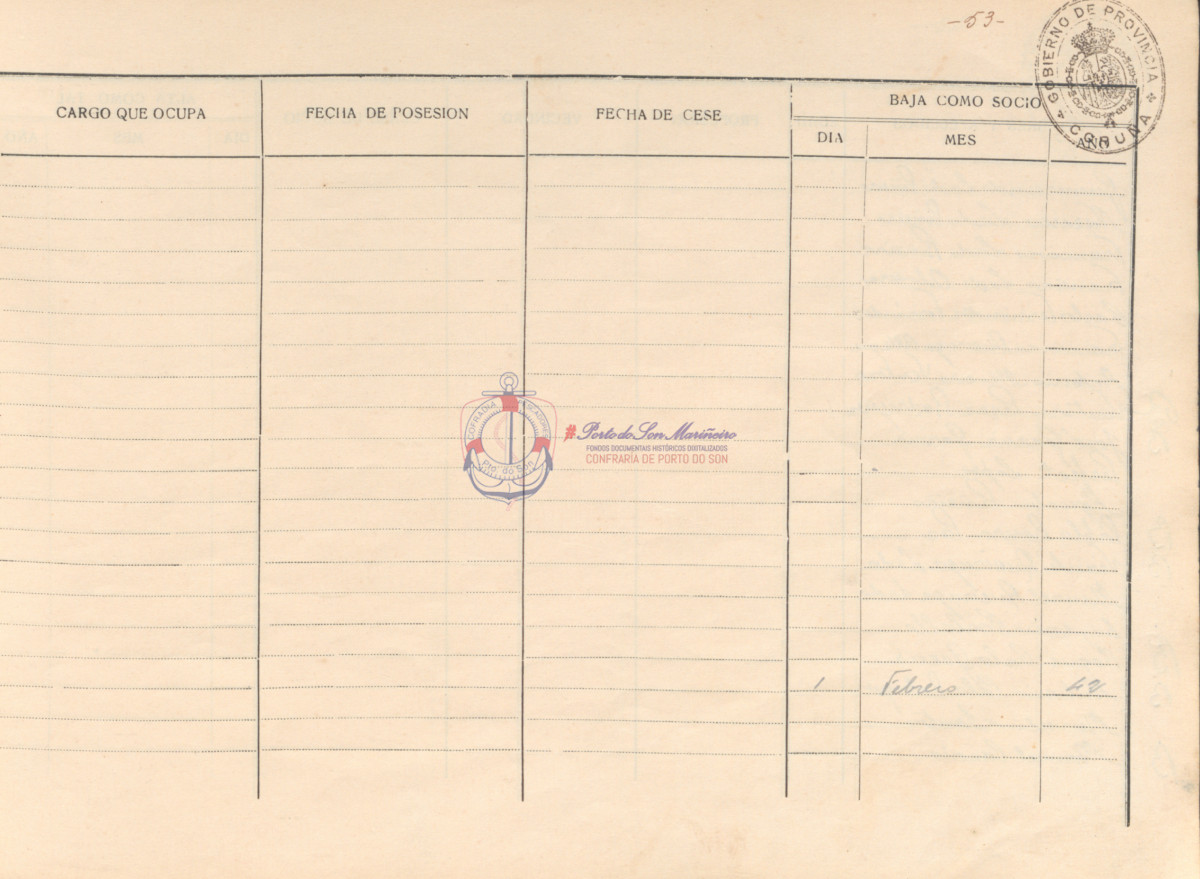 -53-
GOBIERNO DE PROVINCIA
CORUÑA
CARGO QUE OCUPA
FECHA DE POSESION
FECHA DE CESE
BAJA COMO SOCIO
DIA
MES
AÑO
COFRADIA PESCADORES
Pto. do Son
# Porto do Son Mariñeiro
FONDOS DOCUMENTAIS HISTÓRICOS DIXITALIZADOS
CONFRARÍA DE PORTO DO SON
1 Febrero 42